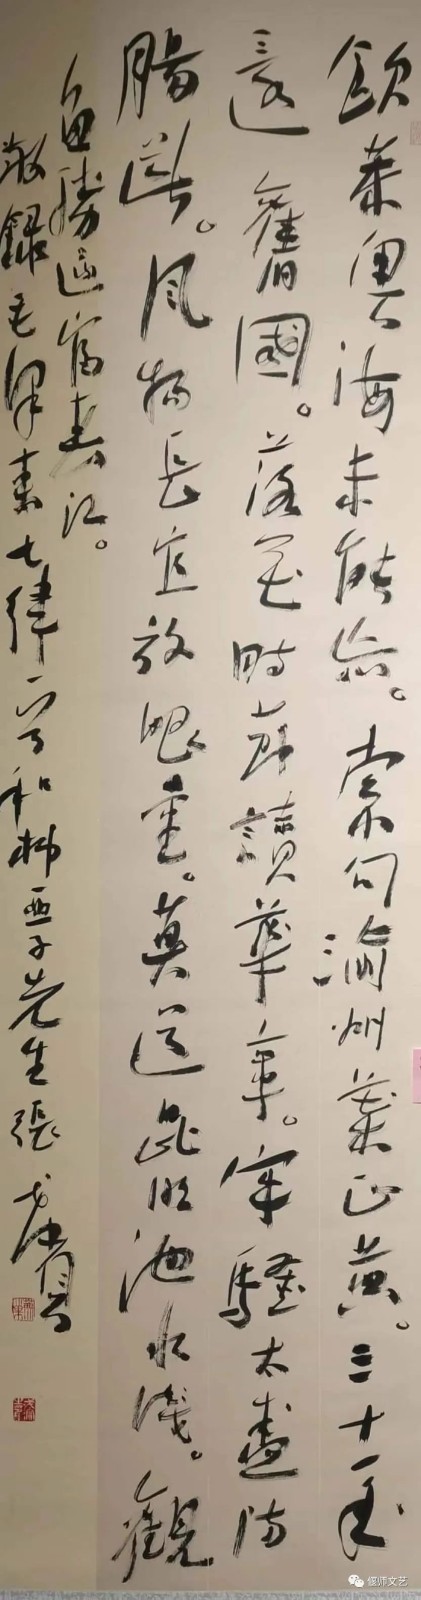 飲茶粵海未能忘。索句渝州葉正黃。三十一年
還舊國。落花時節讀華章。牢騷太盛防
腸斷。风物長宜放眼量。莫道昆明池水淺。觀
魚勝過富春江。
敬録毛澤東七律一首和柳亞子先生 張
偃师文艺